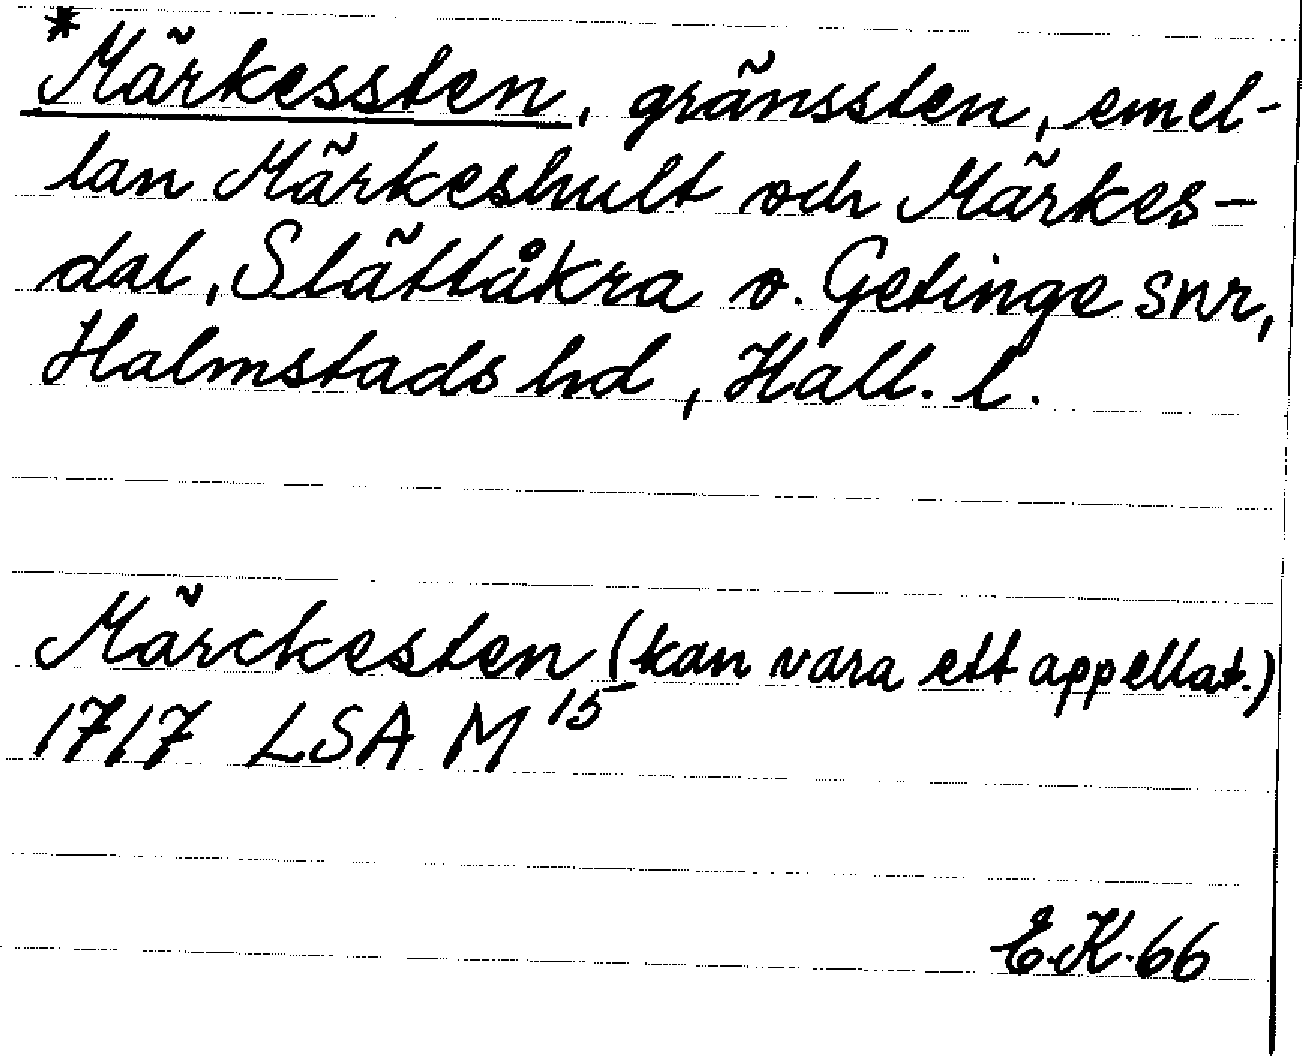 *Märkessten, gränssten, emel-
lan Märkeshult och Märkes-
dal, Slättåkra o. Getinge snr,
Halmstads hd, Hall. l.
Märckesten (kan vara ett appellat.)
1717 LSA M 15
E.K. 66